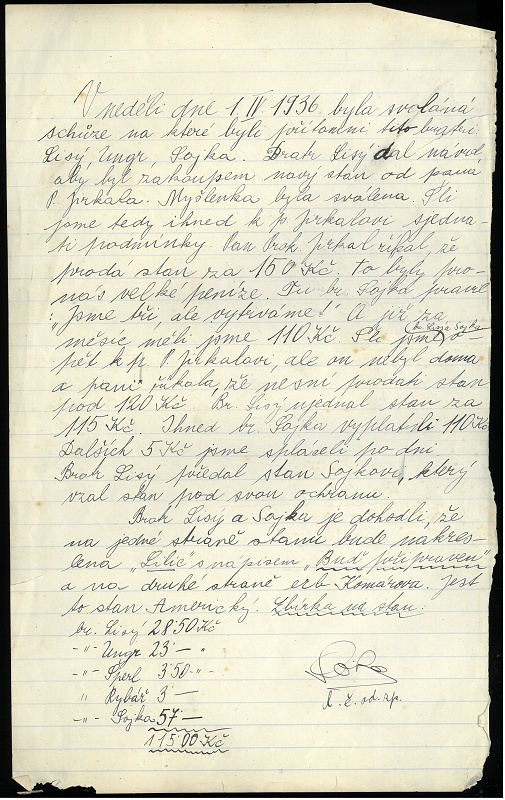 V neděli dne 1 IV 1936 byla svolána
schůze na které byli přítomni tito bratři:
Lisý, Ungr, Sojka. Bratr Lisý dal návrh,
aby byl zakoupen nový stan od pana
P. Prkala. Myšlenka byla sválena. Šli
jsme tedy ihned k p. Prkalovi sjedna-
ti podmínky. Pan Prok. Prkal říkal, že
prodá stan za 150 Kč. To byly pro
nás velké peníze. Tu br. Sojka pravil
: „Jsme tři, ale vytrváme!" A již za
měsíc měli jsme 110 Kč. Šli jsme (br. Lisý a Sojka) o-
pět k p. P. Prkalovi, ale on nebyl doma
a paní říkala, že nesmí prodati stan
pod 120 Kč. Br. Lisý ujednal stan za
115 Kč. Ihned br. Sojka vyplatil 110 Kč
Dalších 5 Kč jsme spláceli po dni.
Bratr Lisý předal stan Sojkovi, který
vzal stan pod svou ochranu.
Bratr Lisý a Sojka je dohodli, že
na jedné straně stanu bude nakres-
lena „Lilie" s nápisem „Buď připraven"
a na druhé straně erb Komárova. Jest
to stan Americký. Sbírka na stan:
br. Lisý 28·50 Kč
-"- Ungr 23·— "
-"- Šperl 3·50 -"-
" Rybář 3·—
-"- Sojka 57·—
115·00 Kč
T. Z. od. zp.